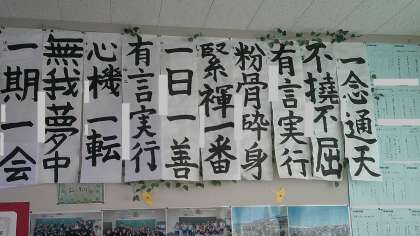 一念通天
不撓不屈
有言実行
粉骨砕身
緊褌一番
一日一善
有言実行
心機一転
無我夢中
一期一会